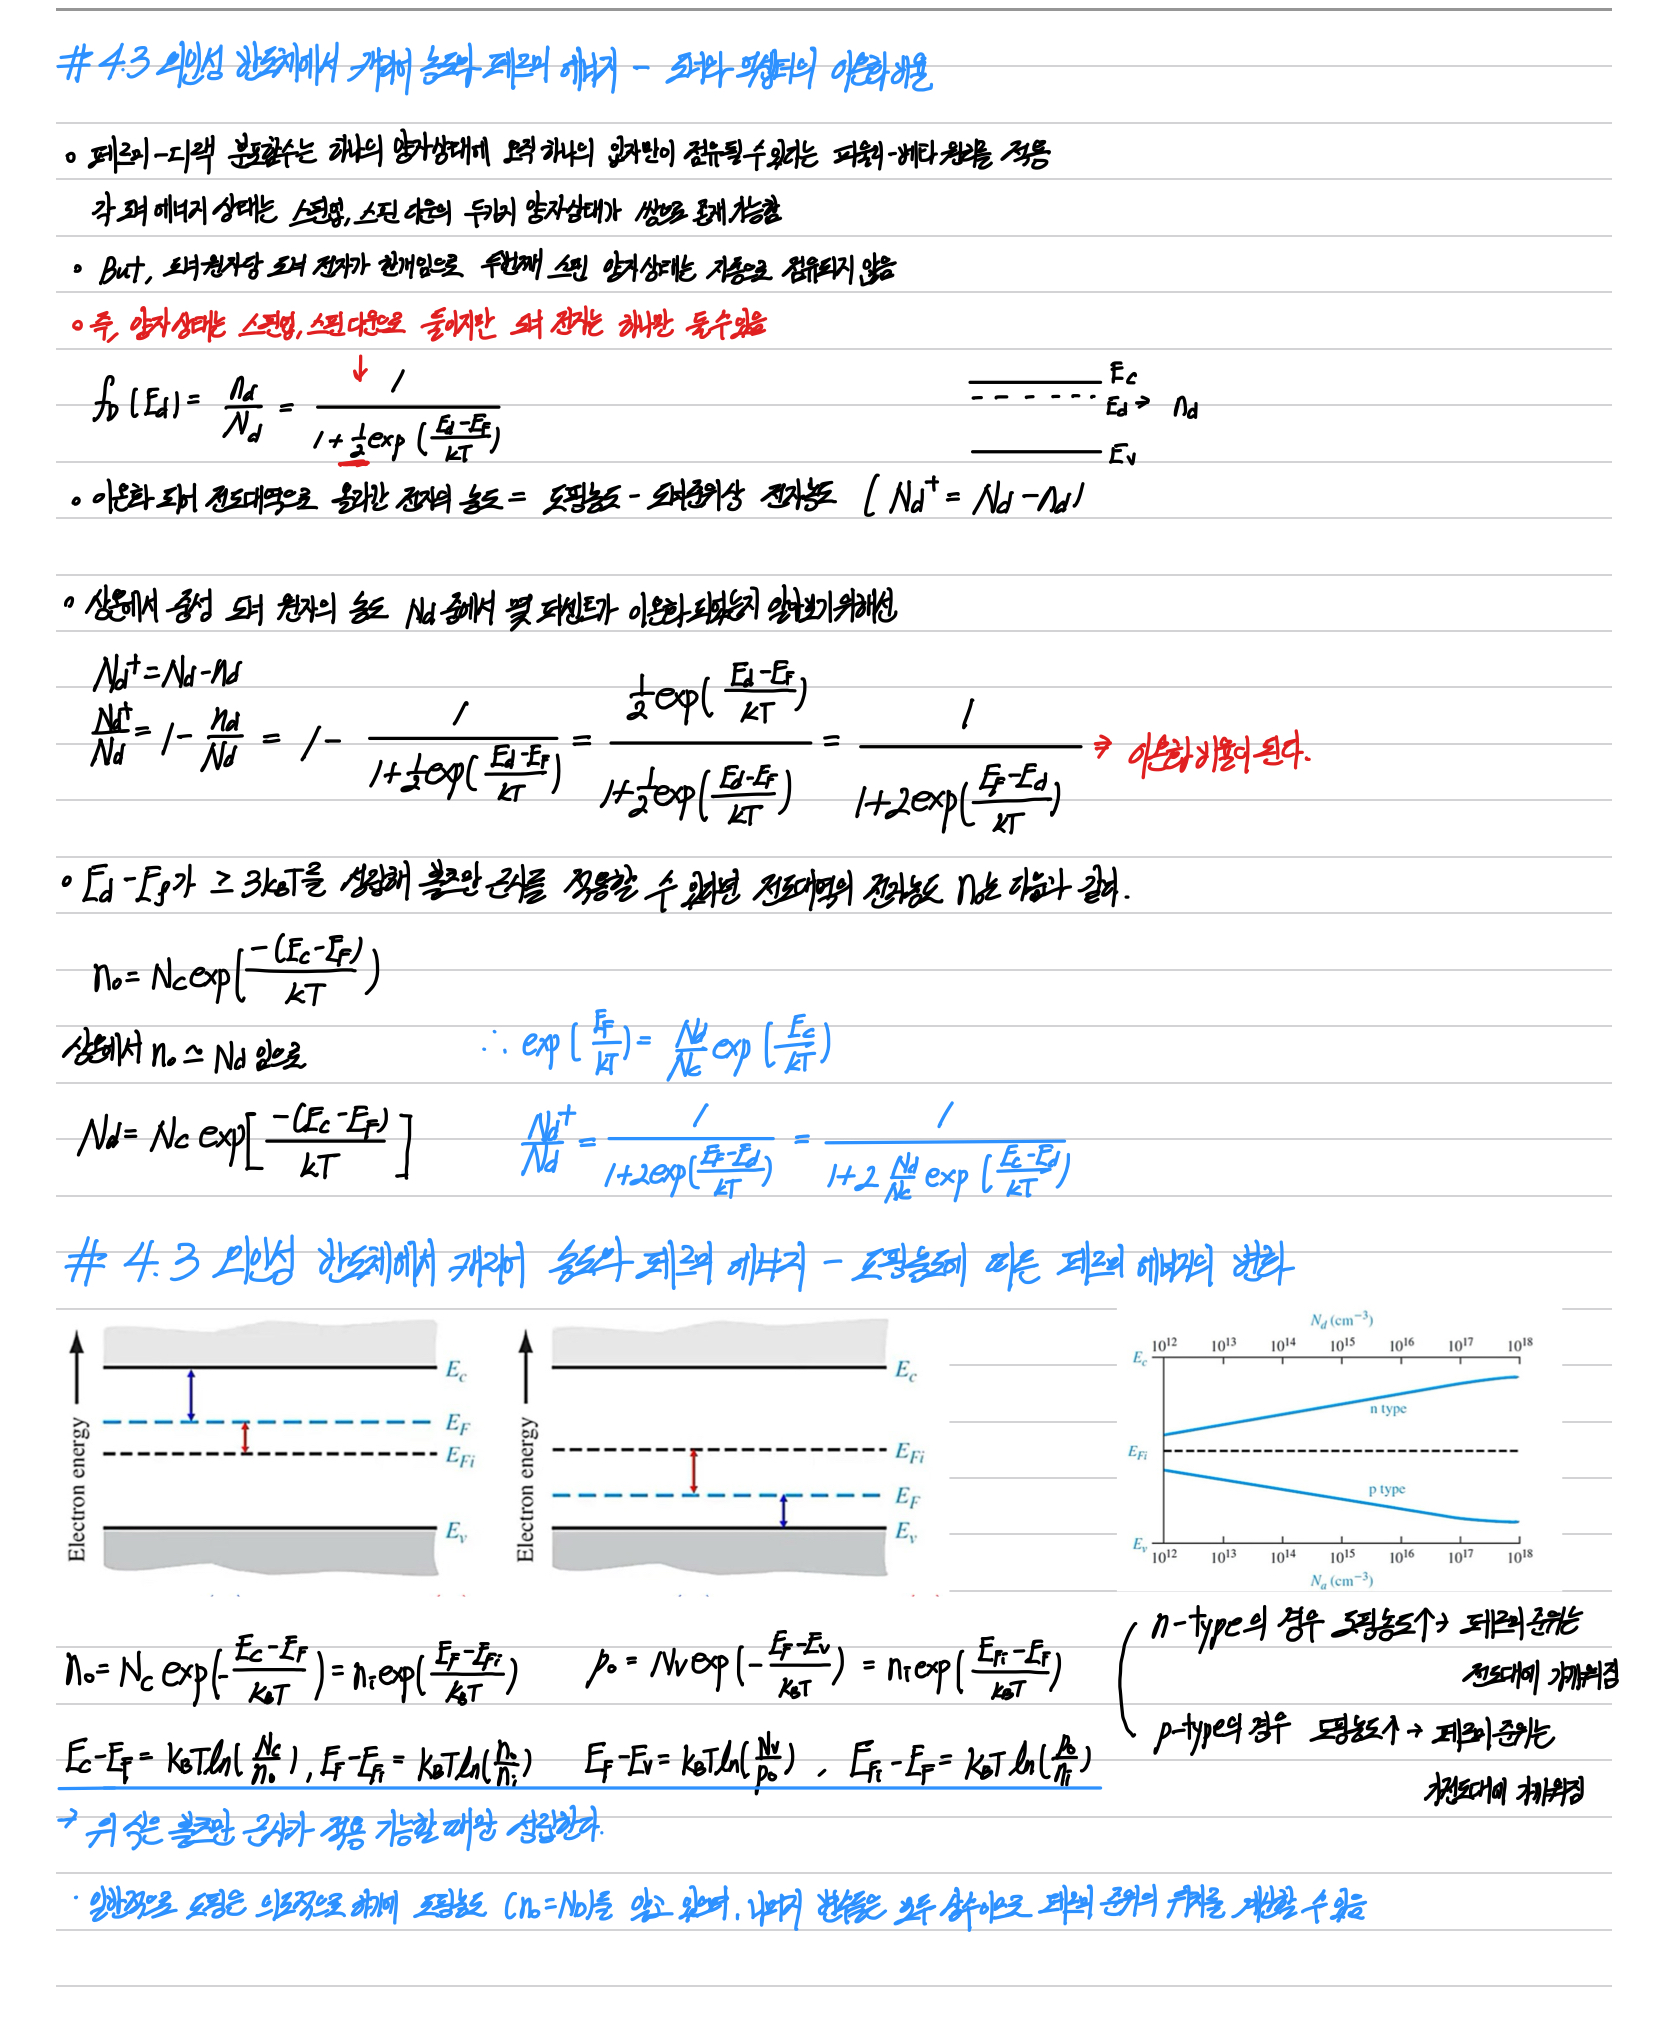 # 4.3 외인성 반도체에서 캐리어 농도와 페르미 에너지 - 도너와 억셉터의 이온화 비율
◦ 페르미-디랙 분포함수는 하나의 양자상태에 오직 하나의 입자만이 점유될 수 있다는 파울리-베타 원리를 적용
각 도너 에너지 상태는 스핀업, 스핀 다운의 두가지 양자상태가 쌍으로 존재 가능함
◦ But, 도너 원자당 도너 전자가 한개임으로 두번째 스핀 양자상태는 자동으로 점유되지 않음
◦ 즉, 양자상태는 스핀업, 스핀다운으로 둘이지만 도너 전자는 하나만 둘 수 있음
↓
f_D (E_d) = n_d / N_d = 1 / (1 + 1/2 exp ((E_d - E_F) / kT))
E_c
E_d → n_d
E_v
◦ 이온화 되어 전도대역으로 올라간 전자의 농도 = 도핑농도 - 도너준위상 전자농도 ( N_d^+ = N_d - n_d )
◦ 상온에서 중성 도너 원자의 농도 N_d 중에서 몇 퍼센트가 이온화 되었는지 알아보기 위해선
N_d^+ = N_d - n_d
N_d^+ / N_d = 1 - n_d / N_d = 1 - 1 / (1 + 1/2 exp((E_d - E_F) / kT)) = 1/2 exp((E_d - E_F) / kT) / (1 + 1/2 exp((E_d - E_F) / kT)) = 1 / (1 + 2 exp((E_F - E_d) / kT)) ⇒ 이온화 비율이 된다.
◦ E_d - E_f가 ≥ 3k_BT를 성립해 볼츠만 근사를 적용할 수 있다면 전도대역의 전자농도 n_0는 다음과 같다.
n_0 = N_c exp(-(E_c - E_F) / kT)
상온에서 n_0 ≃ N_d 임으로
∴ exp(E_F / kT) = N_d / N_c exp(E_c / kT)
N_d = N_c exp[-(E_c - E_F) / kT]
N_d^+ / N_d = 1 / (1 + 2exp((E_F - E_d) / kT)) = 1 / (1 + 2 N_d / N_c exp((E_c - E_d) / kT))
# 4.3 외인성 반도체에서 캐리어 농도와 페르미 에너지 - 도핑농도에 따른 페르미 에너지의 변화
Electron energy
E_c
E_F
E_Fi
E_v
Electron energy
E_c
E_Fi
E_F
E_v
N_d (cm^-3)
10^12 10^13 10^14 10^15 10^16 10^17 10^18
E_c
n type
E_Fi
p type
E_v
10^12 10^13 10^14 10^15 10^16 10^17 10^18
N_a (cm^-3)
n_0 = N_c exp(-(E_c - E_F) / k_BT) = n_i exp((E_F - E_Fi) / k_BT)
p_0 = N_v exp(-(E_F - E_v) / k_BT) = n_i exp((E_Fi - E_F) / k_BT)
E_c - E_F = k_BT ln(N_c / n_0), E_F - E_Fi = k_BT ln(n_0 / n_i)
E_F - E_v = k_BT ln(N_v / p_0), E_Fi - E_F = k_BT ln(p_0 / n_i)
n-type의 경우 도핑농도↑ → 페르미 준위는
전도대에 가까워짐
p-type의 경우 도핑농도↑ → 페르미 준위는
가전도대에 가까워짐
→ 위 식은 볼츠만 근사가 적용 가능할 때만 성립한다.
· 일반적으로 도핑은 의도적으로 하기에 도핑농도 (n_0 = N_D)를 알고 있으며, 나머지 변수들은 모두 상수이므로 페르미 준위의 위치를 계산할 수 있음